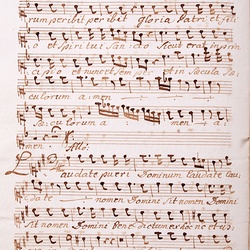 rum peribit peribit gloria Patri et fili
o et Spiritui Sancto Sicut erat in prin
cipio et nunc et semper et in saecula sae
culorum amen
saeculorum amen men
men. Allo:
Laudate pueri Dominum laudate lau
date nomen Domini sit nomen Domini
sit nomen Domini benedictum ex hoc nc et us